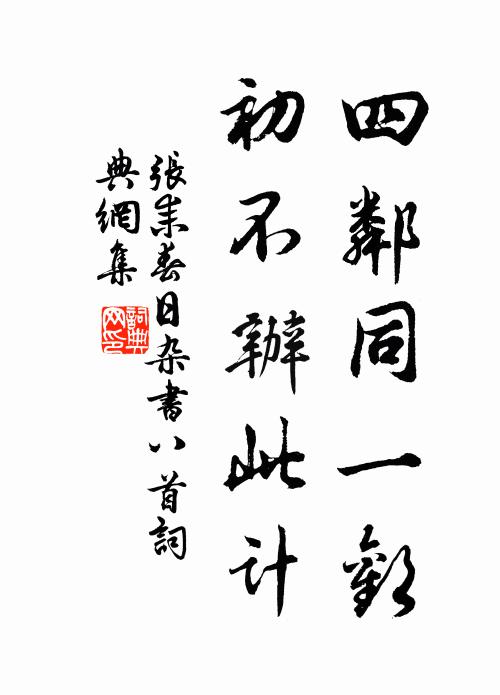 四鄰同一歡
初不辦此计
張耒春日杂書八首詞
典網集
詞典
网印